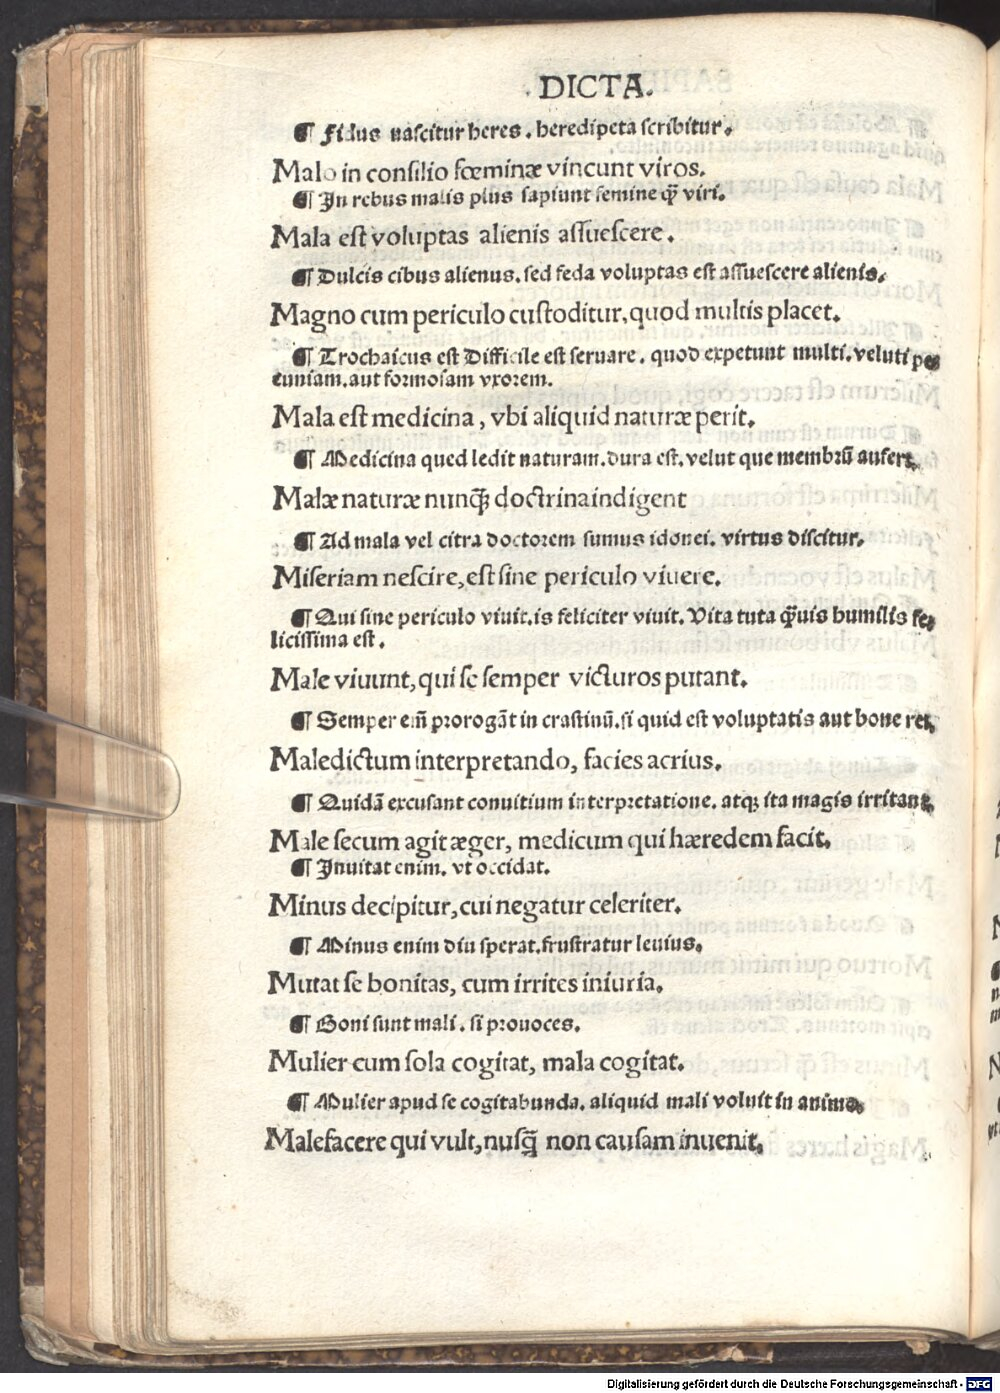 .DICTA.
¶ Fidus nascitur heres. heredipeta scribitur.
Malo in consilio fœminæ vincunt viros.
¶ In rebus malis plus sapiunt femine q̃ȝ viri.
Mala est voluptas alienis assuescere.
¶ Dulcis cibus alienus. sed feda voluptas est assuescere alienis.
Magno cum periculo custoditur, quod multis placet.
¶ Trochaicus est Difficile est seruare. quod expetunt multi. veluti pe⸗
cuniam. aut formosam vxorem.
Mala est medicina, vbi aliquid naturæ perit.
¶ Medicina qued ledit naturam. dura est. velut que membrũ aufert.
Malæ naturæ nunq̃ȝ doctrina indigent
¶ Ad mala vel citra doctorem sumus idonei. virtus discitur.
Miseriam nescire, est sine periculo viuere.
¶ Qui sine periculo viuit. is feliciter viuit. Vita tuta q̃ȝuis humilis fe⸗
licissima est.
Male viuunt, qui se semper victuros putant.
¶ Semper em̃ prorogãt in crastinũ. si quid est voluptatis aut bone rei.
Maledictum interpretando, facies acrius.
¶ Quidã excusant conuitium interpretatione. atqȝ ita magis irritant.
Male secum agit æger, medicum qui hæredem facit.
¶ Inuitat enim. vt occidat.
Minus decipitur, cui negatur celeriter.
¶ Minus enim diu sperat. frustratur leuius.
Mutat se bonitas, cum irrites iniuria.
¶ Boni sunt mali. si prouoces.
Mulier cum sola cogitat, mala cogitat.
¶ Mulier apud se cogitabunda. aliquid mali voluit in animo.
Malefacere qui vult, nusq̃ȝ non causam inuenit.
Digitalisierung gefördert durch die Deutsche Forschungsgemeinschaft - DFG